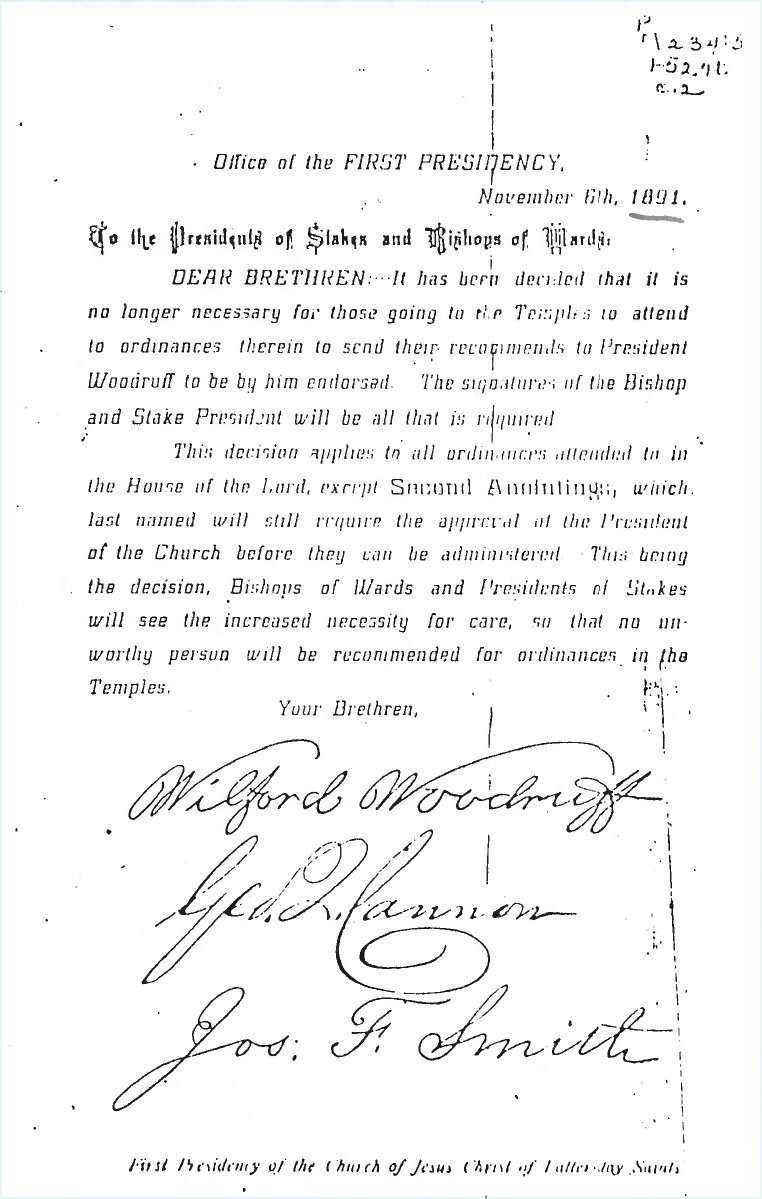 P
1234.5
F52.9L
c.2
Office of the FIRST PRESIDENCY,
November 6th, 1891.
To the Presidents of Stakes and Bishops of Wards:
DEAR BRETHREN:—It has been decided that it is
no longer necessary for those going to the Temples to attend
to ordinances therein to send their recommends to President
Woodruff to be by him endorsed. The signatures of the Bishop
and Stake President will be all that is required
This decision applies to all ordinances attended to in
the House of the Lord, except Second Anointings, which
last named will still require the approval of the President
of the Church before they can be administered This being
the decision, Bishops of Wards and Presidents of Stakes
will see the increased necessity for care, so that no un-
worthy person will be recommended for ordinances in the
Temples.
Your Brethren,
Wilford Woodruff
Geo. Q. Cannon
Jos. F. Smith
First Presidency of the Church of Jesus Christ of Latter-day Saints